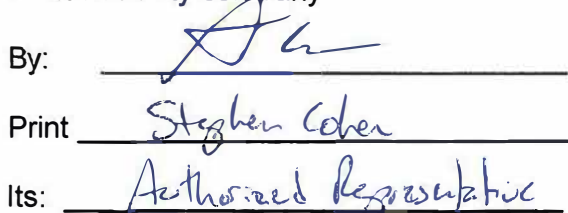 By:
Print Stephen Cohen
Its: Authorized Representative